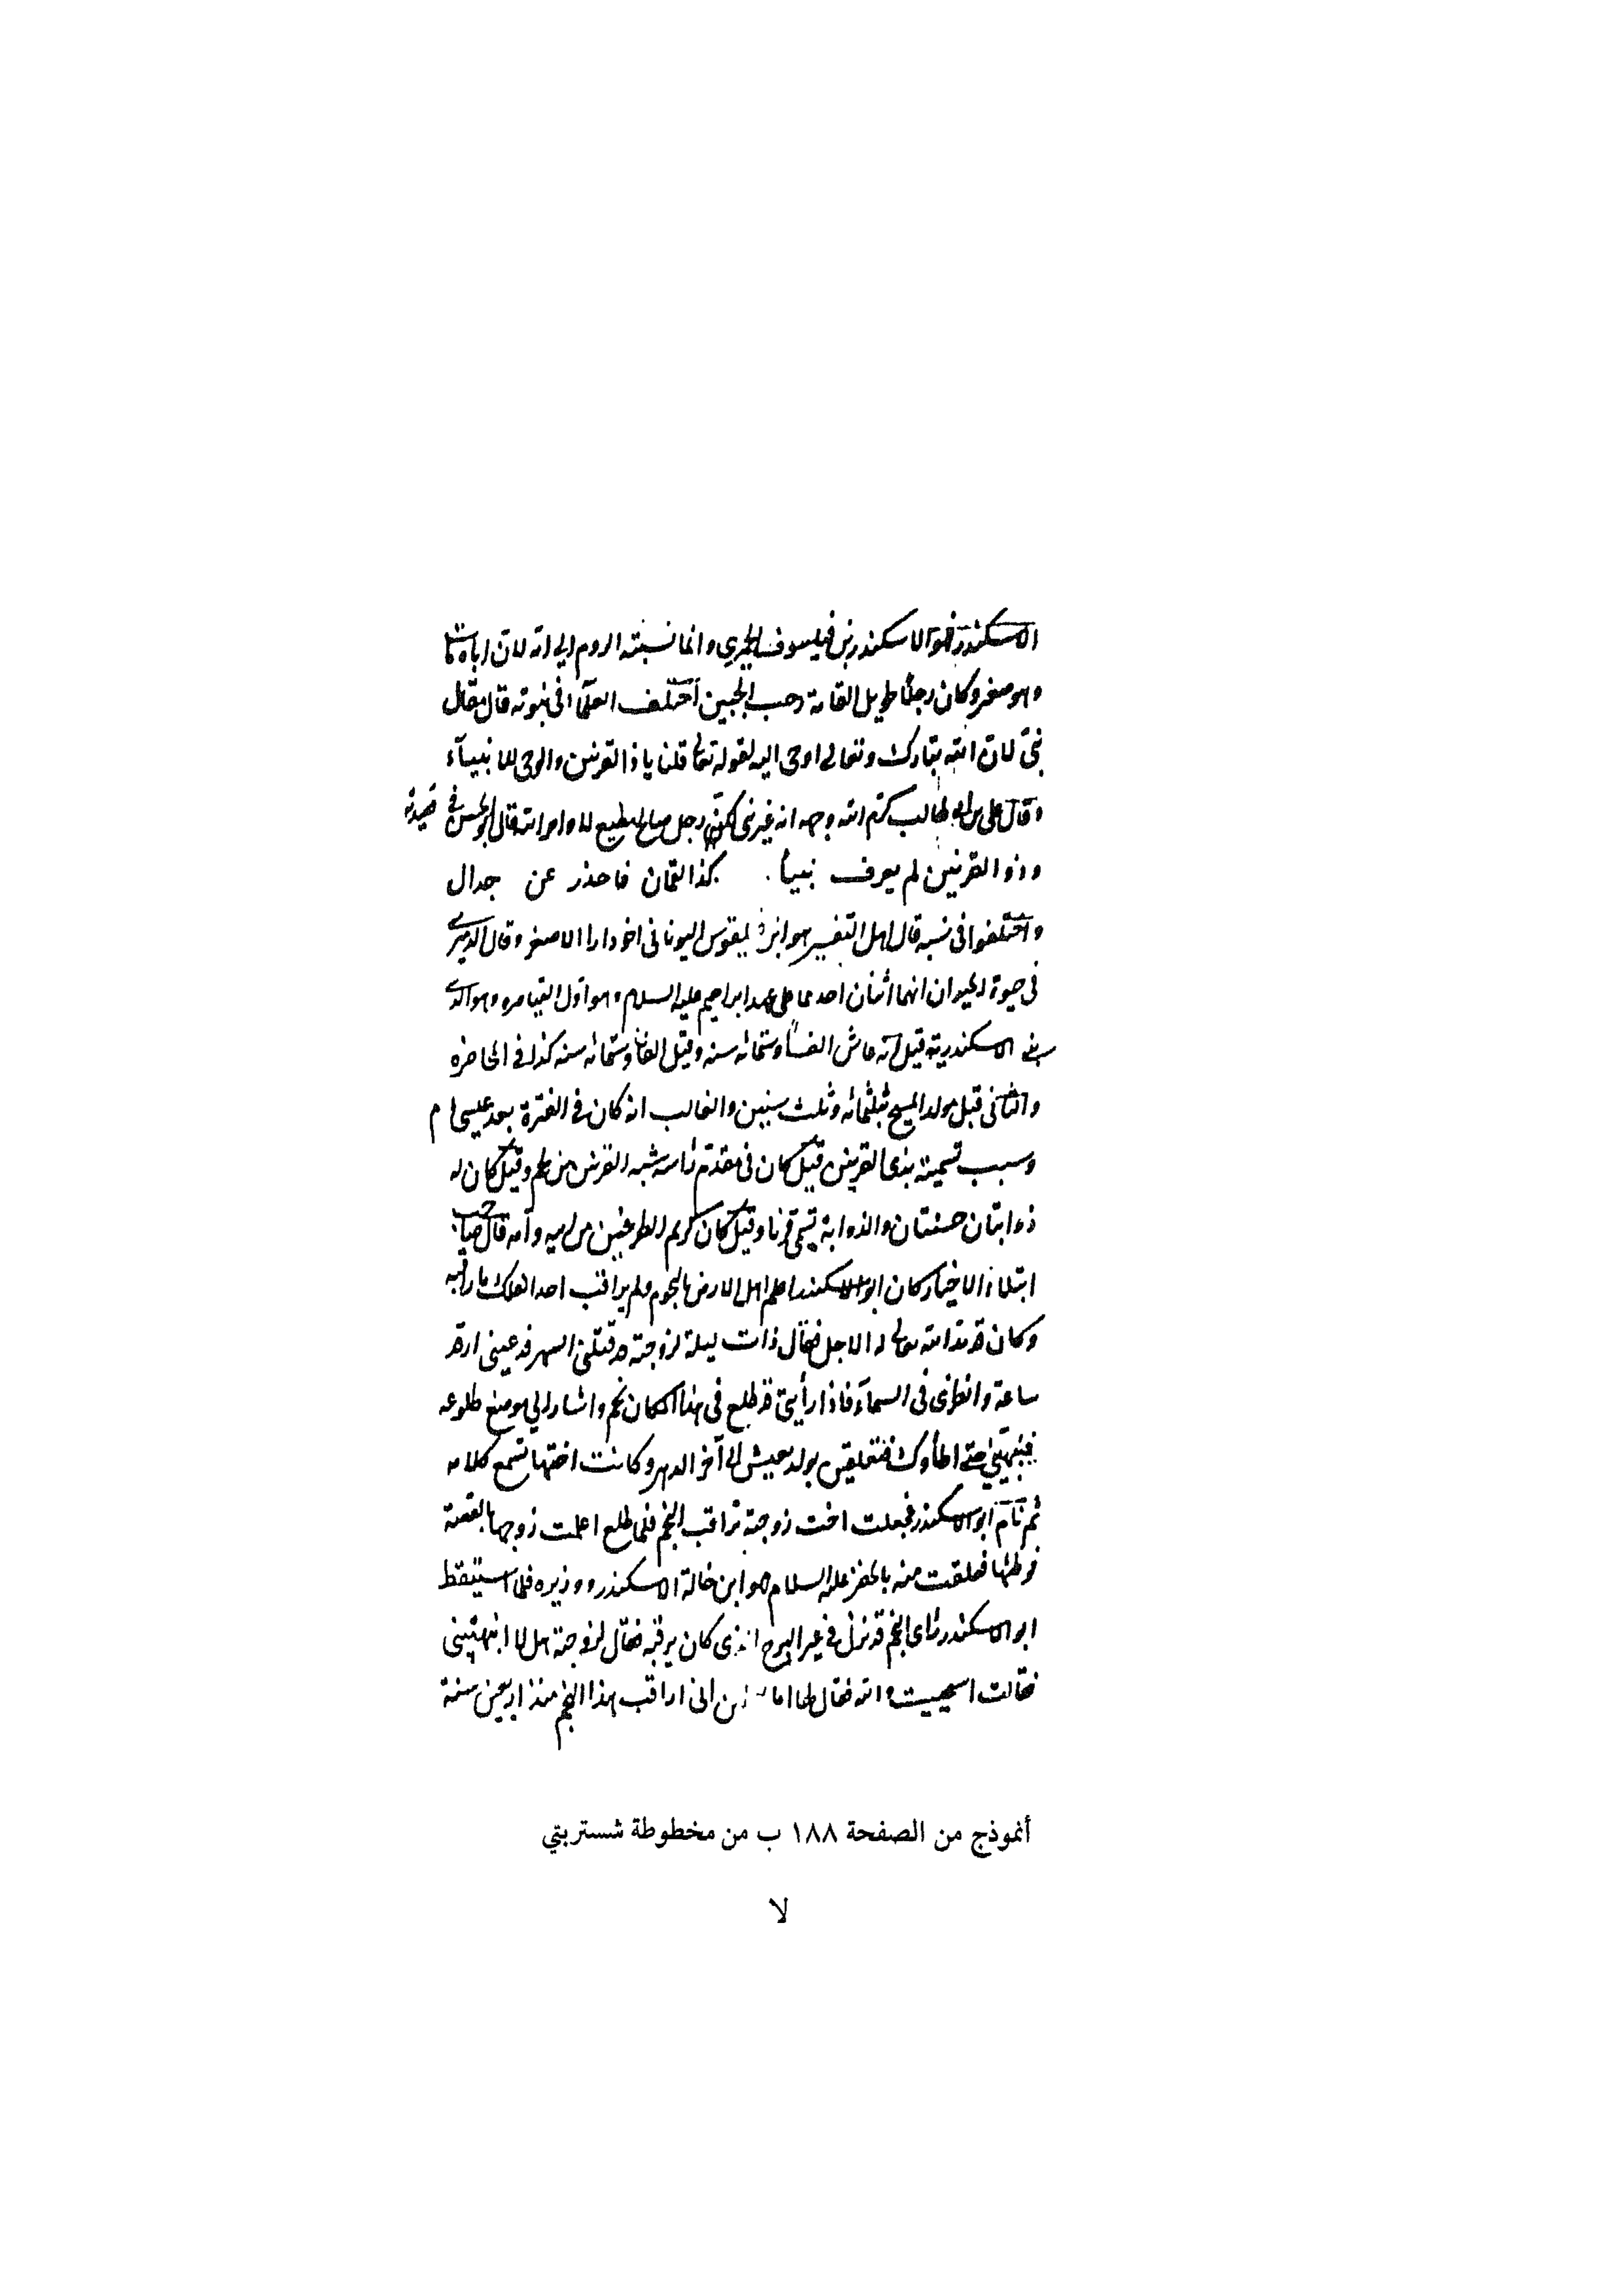 الاسكندر فهو الاسكندر بن فيلسوف الحميري وانما نسبته الروم الي امه لان اباه مات
وهو صغير وكان رجلا طويل القامة رحب الجبين اختلف العلمآ في نبوته قال مقاتل
نبيّ لان الله تبارك وتعالى اوحى اليه لقوله تعالى قلنا ياذا القرنين والوحى للانبيآء
وقال على بن ابى طالب كرّم الله وجهه انه غير نبى لكنه رجل صالح مطيع لاوامر الله قال ابو الحسن فى قصيدته
وذو القرنين لم يعرف نبيأ كذا لقمان فاحذر عن جدال
واختلفوا فى نسبه قال اهل التفسير هو اليونانى اخو دارا الاصغر وقال الدميرى
فى حيوة الحيوان انهما اثنان احدهما على عهد ابراهيم عليه السلام وهو اوّل القياصره وهو الذى
بنى الاسكندرية قيل انه عاش الفاً وستمائه سنه وقيل الفا وستمائه سنه كذا فى المحاضره
والثانى قبل مولد المسيح بثلثمائه وثلث سنين والغالب انه كان فى الفترة بعد عيسى ع م
وسبب تسميته بذى القرنين قيل كان فى مقدّم رأسه شبه القرنين من لحم وقيل كان له
ذوابتان حسنتان والذوابة تسمّى قرنا وقيل كان كريم الطرفين من ابيه وامه قال صاحب
ابتلاء الاخيار كان ابو الاسكندر اعلم اهل الارض بالنجوم ولم يراقب احد الفلك ما راقبه
وكان قد مدّ الله تعالى له الاجل فقال ذات ليلة لزوجته قد قتلنى السهر فدعينى ارقد
ساعة وانظرى فى السمآء فاذا رأيتى قد طلع فى هذا المكان نجم واشار الي موضع طلوعه
فنبهينى حتى اطأوك فتعلقين بولد يعيش الى آخر الدهر وكانت اختها تسمع كلامه
ثم نام ابو الاسكندر فجعلت اخت زوجته تراقب النجم فلما طلع اعلمت زوجها بالقصة
فوطئها فعلقت منه بالخضر عليه السلام هو ابن خالة الاسكندر ووزيره فلما استيقظ
ابو الاسكندر رأى النجم قد نزل فى غير البرج الذى كان يرقبه فقال لزوجته هل لا انبهتينى
فقالت استحييت والله فقال لها اما انى اراقب هذا النجم منذ اربعين سنة
أنموذج من الصفحة ١٨٨ ب من مخطوطة شستربتي
لا